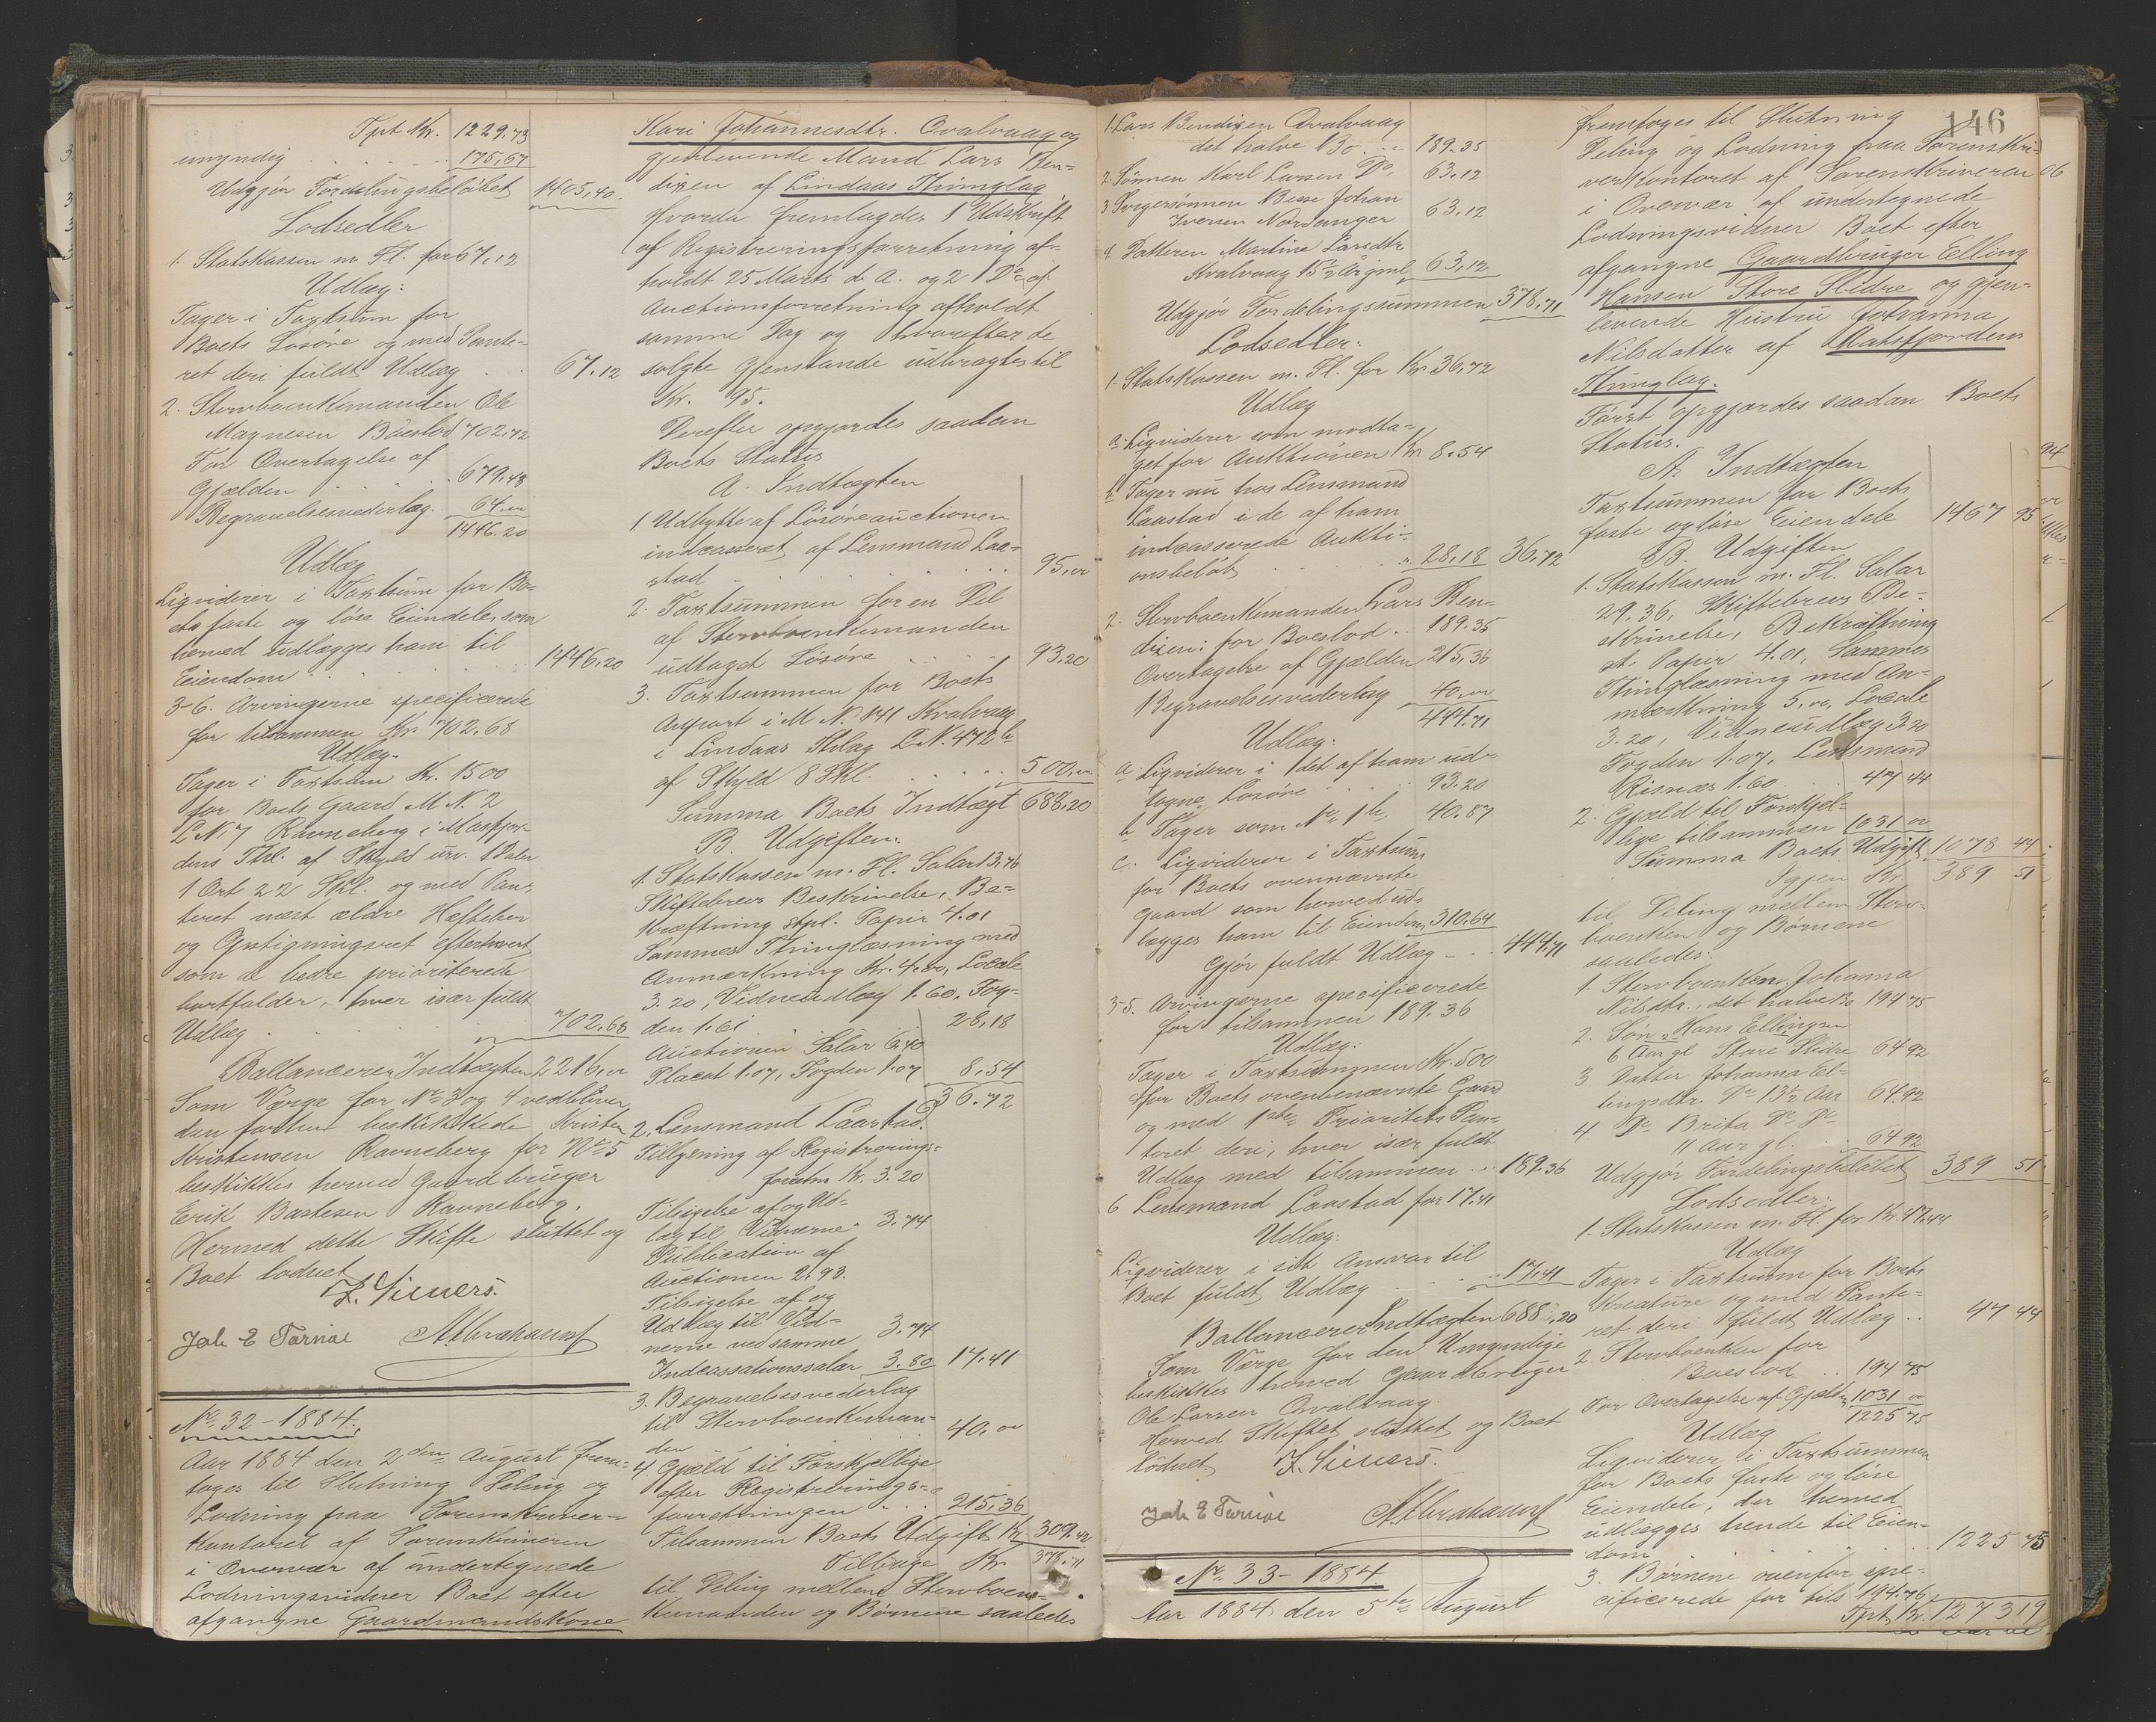 Tprt Kr. 1229.73
umyndig . . . . . . 175,67
Udgjör Fordelingsbelöbet 1405,40.
Lodsedler
1. Statskassen m Fl. for 67.12
Udlæg:
Tager i Taxtsum for
Boets Lösöre og med Pante-
ret deri fuldt Udlæg . . 67.12
2. Stervboenkemanden Ole
Magnesen Boeslod 702.72
For Overtagelse af
Gjælden . . . . . 679.48
Begravelsesvederlag. 64.00
1446.20
Udlæg
Ligviderer i Taxtsum for Bo-
ets faste og löse Eiendele som
herved udlægges ham til
Eiendom . . . . . 1446.20
3-6. Arvingerne specificerede
for tilsammen Kr. 702.68
Udlæg.
Tager i Taxtsum Kr. 1500
for Boets Gaard M N. 2
L N. 7 Ravneberg i Masfjor-
dens Thl. af Skyld urv. 1 Daler
1 Ort 22 Skl. og med Pan-
teret næst ældre Heftelser
og Opstigningsret efterhvert
som de bedre prioriterede
bortfalder, hver især fuldt
Udlæg . . . . . 702.68
Ballancerer Indtægten 2216,00
Som Værge for No 3 og 4 vedbliver
den forhen beskikkede Kristen
Kristensen Ravneberg for No 5
beskikkes herved Gaardbruger
Erik Bastesen Ravneberg.
Hermed dette Skifte sluttet og
Boet lodnet
F. Sivers.
Jak E Tarnae A. Abrahamsen
No 32 - 1884.
Aar 1884 den 2den August frem-
toges til Slutning Deling og
Lodning paa Sorenskriver-
kontoret af Sorenskriveren
i Overvær af undertegnede
Lodningsvidner Boet efter
afgangne Gaardmandskone
Kari Johannesdtr. Qvalvaag og
gjenlevende Mand Lars Ben-
dixen af Lindaas Thinglag
Hvorda fremlagdes 1 Udskrift
af Registreringsforretning af-
holdt 25 Marts d. A. og 2 Do af
Auctionsforretning afholdt
samme Dag og hvorefter de
solgte Gjenstande udbragtes til
Kr. 95.
Derefter opgjordes saadan
Boets Status
A. Indtægten
1 Udbytte af Lösöreauctionen
indcasseret af Lensmand Laa-
stad . . . . . 95,00
2. Taxtsummen for en Del
af Stervboenkemanden
udtaget Lösöre . . . 93.20
3. Taxtsummen for Boets
Anpart i M N. 141 Kvalvaag
i Lindaas Thlag L N. 472 b
af Skyld 8 Skl. . . . . 500,00
Summa Boets Indtægt 688.20
B. Udgiften:
1. Statskassen m. Fl. Salar 13,76
Skiftebrevs Beskrivelse, Be-
kræftning stpl. Papir 4.01
Sammes Thinglæsning med
Anmærkning Kr. 4.00, Locale
3.20, Vidneudlæg 1.60, Fog-
den 1.61 . . . . 28,18
Auctionen Salar 6,40
Placat 1.07, Fogden 1.07 8.54
36.72
2. Lensmand Laastad:
Tillysning af Registrerings-
forretn Kr. 3.20
Tilsigelse af og Ud-
læg til Vidnerne 3.74
Publication af
Auctionen 2.93.
Tilsigelse af og
Udlæg til Vid-
nerne ved samme 3.74
Indcassationssalar 3.80 17.41
3. Begravelsesvederlag
til Stervboenkeman-
den . . . . 40,00
4. Gjæld til Forskjellige
efter Registrerings-
forretningen . . . 215,36
Tilsammen Boets Udgift Kr. 309.49
Tilbage Kr. 378.71
til Deling mellem Stervboen-
kemanden og Börnene saaledes
1. Lars Bendixen Qvalvaag
det halve Bo . . 189.35
2. Sönnen Karl Larsen Do, 63.12
3 Svigersönnen Besse Johan
Iversen Nordanger 63.12
4 Datteren Martine Larsdtr
Kvalvaag 15 1/2 Aar gml. 63.12
Udgjör Fordelingssummen 378,71
Lodsedler:
1. Statskassen m. Fl. for Kr. 36,72
Udlæg
a. Ligviderer som modta-
get for Auktionen Kr 8.54
b. Tager nu hos Lensmand
Laastad i de af ham
indcasserede Aukti-
onsbelöb . . . . 28,18 36,72
2. Stervboenkemanden Lars Ben-
dixen: for Boeslod . . 189.35
Overtagelse af Gjælden 215,36
Begravelsesvederlag 40,00
444.71
Udlæg:
a. Ligviderer i det af ham ud-
tagne Lösöre . . . 93.20
b Tager som No 1 b, 40.87
c. Ligviderer i Taxtsum
for Boets ovennævnte
Gaard som herved ud-
lægges ham til Eiendom, 310.64
Gjör fuldt Udlæg . . . 444.71
3-5. Arvingerne specificerede
for tilsammen 189.36
Udlæg:
Tager i Taxtsummen Kr. 500
for Boets ovenbenævnte Gaard
og med 1ste Prioritets Pan-
teret deri, hver især fuldt
Udlæg med tilsammen . . 189.36
6 Lensmand Laastad for 17,41
Udlæg:
Ligviderer i sit Ansvar til
Boet fuldt Udlæg . . . 17,41
Ballancerer Indtægten 688.20
Som Værge for den Umyndige
beskikkes herved Gaardbruger
Ole Larsen Qvalvaag.
Herved Skiftet sluttet og Boet
lodnet F. Sivers.
Jak E Tarnae A. Abrahamsen
No. 33 - 1884
Aar 1884 den 5te August
146
fremtoges til Slutning
Deling og Lodning paa Sorenskri-
verkontoret af Sorenskriveren
i Overvær af undertegnede
Lodningsvidner Boet efter
afgangne Gaardbruger Elling
Hansen Store Slidre og gjen-
levende Hustru Johanna
Nilsdatter af Matsfjordens
Thinglag.
Først opgjordes saadan Boets
Status.
A. Indtægten
Taxtsummen for Boets
faste og löse Eiendele 1467 95
B. Udgiften
1. Statskassen m. Fl. Salar
29.36, Skiftebrevs Be-
skrivelse, Bekræftning
st. Papir 4.01, Sammes
Thinglæsning med An-
mærkning 5,00, Locale
3.20, Vidneudlæg 3.20
Fogden 1.07, Lensmand
Risnæs 1.60 . . 47 44
2. Gjæld til Forskjel-
lige tilsammen 1031 00
Summa Boets Udgift 1078 44
Igjen Kr. 389 51
til Deling mellem Sterv-
boenken og Börnene
saaledes:
1. Stervboenken Johanna
Nilsdtr., det halve Bo 194 75
2. Sön Hans Ellingsen
6 Aar gl Store Slidre 64 92
3. Datter Johanna El-
lingsdtr. Do 13 1/2 Aar 64.92
4 Do Brita Do Do
11 Aar gl. . . 64 92
Udgjör Fordelingsbelöbet 389 51
Lodsedler:
1. Statskassen m. Fl. for Kr. 47,44
Udlæg
Tager i Taxtsum for Boets
Kreature og med Pante-
ret deri fuldt Udlæg . . 47 44
2. Stervboenken for
Boeslod . . 194 75
For Overtagelse af Gjælden 1031 00
1225 75
Udlæg
Ligviderer i Taxtsummen
for Boets faste og löse
Eiendele, der herved
udlægges hende til Eien-
dom . . . . . 1225 75
3. Börnene ovenfor spe-
cificerede for tils 194.76
Tprt Kr. 1273 19